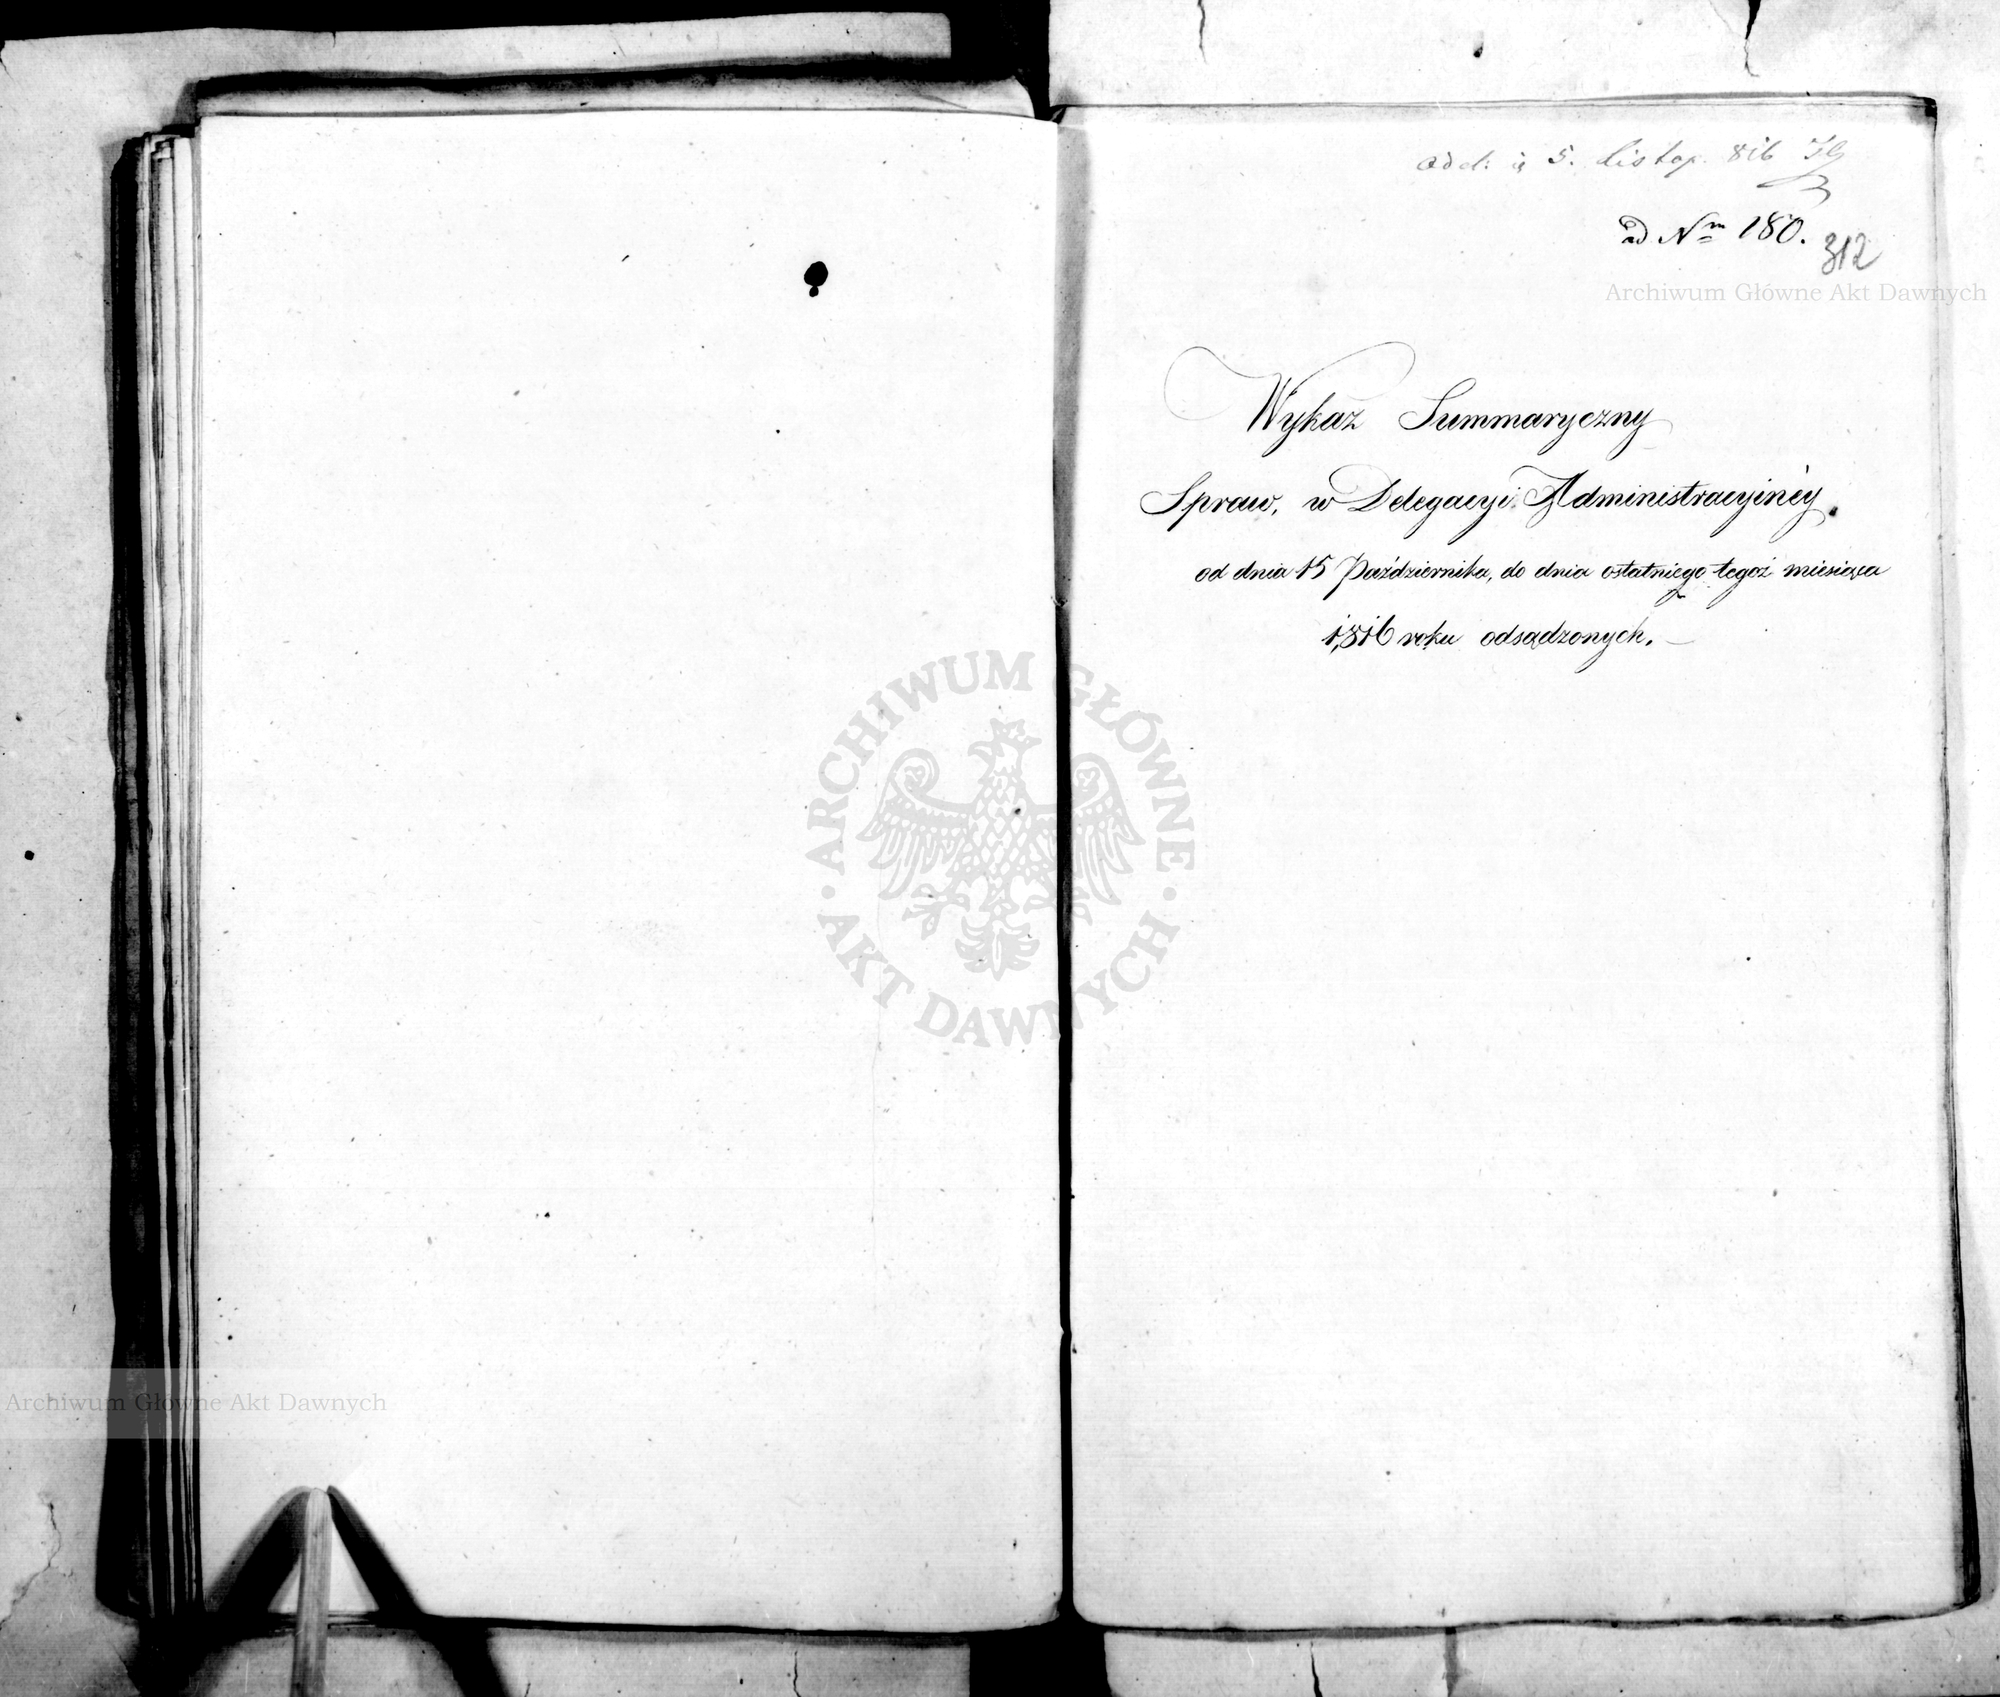 odd: 5. listop. 816
ad Nm 180.
312
Archiwum Główne Akt Dawnych
Wykaz Summaryczny
Spraw, w Delegacyi Administracyinéy
od dnia 15 Października, do dnia ostatniego tegoż miesiąca
1,816 roku odsądzonych.
ARCHIWUM GŁÓWNE AKT DAWNYCH
Archiwum Główne Akt Dawnych